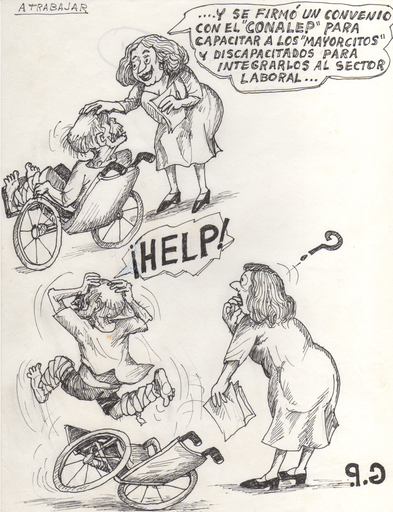 A TRABAJAR
....Y SE FIRMÓ UN CONVENIO
CON EL "CONALEP" PARA
CAPACITAR A LOS "MAYORCITOS"
Y DISCAPACITADOS PARA
INTEGRARLOS AL SECTOR
LABORAL...
¡HELP!
?
G.P.